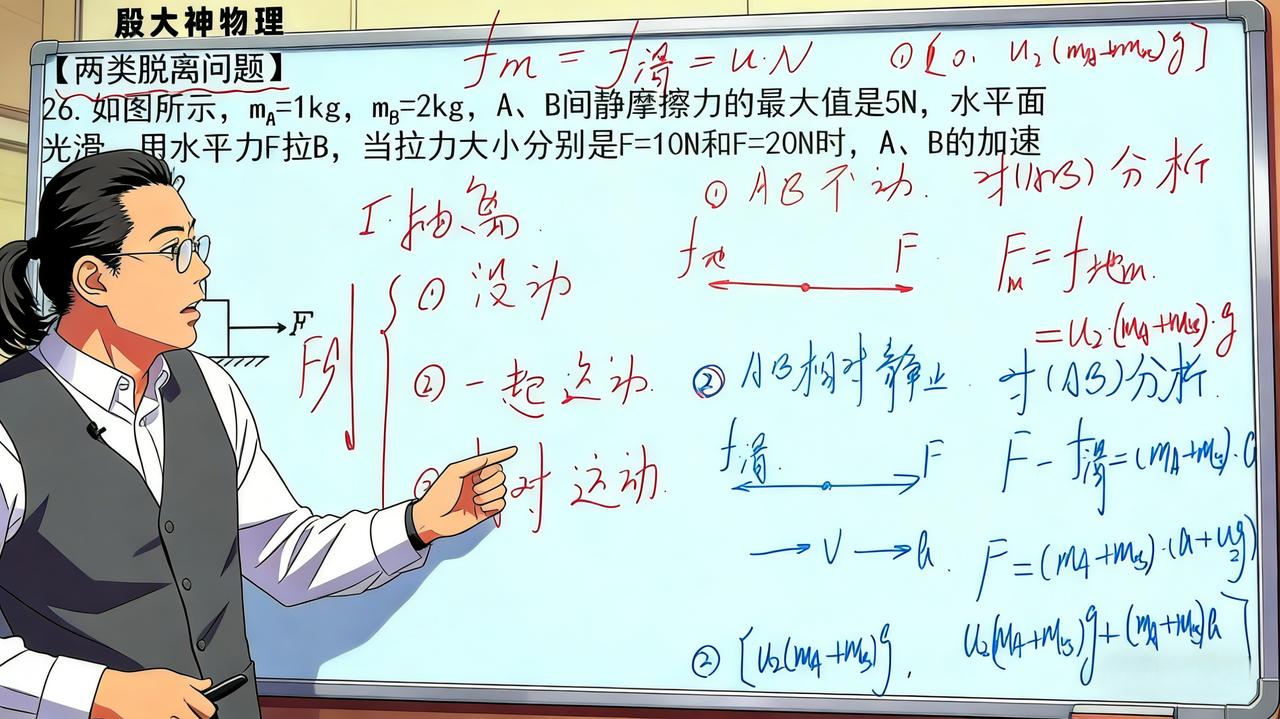 殷大神物理
【两类脱离问题】
fm = f滑 = u·N ① [0, u₂(mA+mB)g]
26. 如图所示，mA=1kg，mB=2kg，A、B间静摩擦力的最大值是5N，水平面
光滑，用水平力F拉B，当拉力大小分别是F=10N和F=20N时，A、B的加速
I.抽离
F
F
① 没动
② 一起运动
对运动
① AB不动. 对(AB)分析
f地 F Fm = f地m.
= u₂·(mA+mB)·g
② AB相对静止. 对(AB)分析.
f滑 F F - f滑 = (mA+mB)·a
→ V → a. F = (mA+mB)·(a+u₂g)
② [u₂(mA+mB)g, u₂(mA+mB)g+(mA+mB)a]